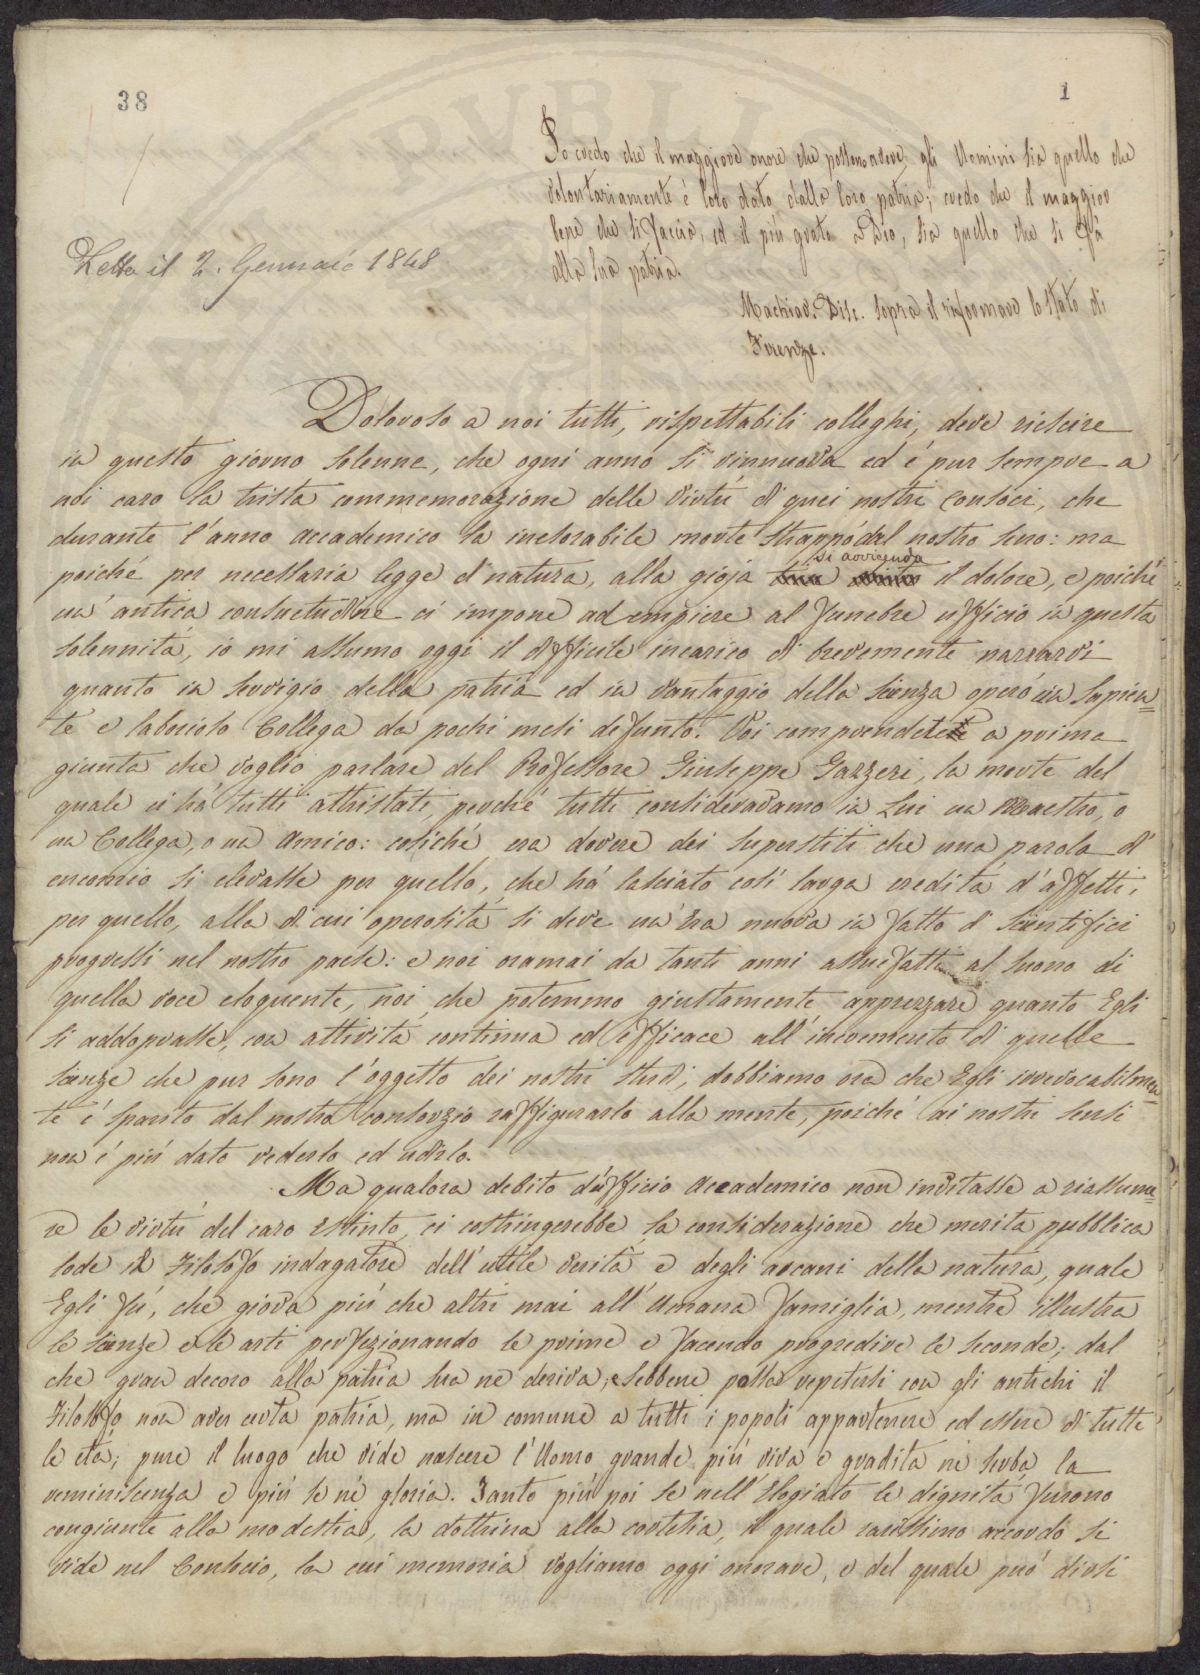 38
1
Io credo che il maggiore onore che possono avere gli Uomini sia quello che
volontariamente è loro dato dalla loro patria; credo che il maggior
bene che si faccia, ed il più grato a Dio, sia quello che si fà
alla sua patria.
Machiav. Disc. sopra il riformare lo Stato di
Firenze.
Letta il 2. Gennaio 1848
Doloroso a noi tutti, rispettabili colleghi, deve riescire
in questo giorno solenne, che ogni anno si rinnuova ed è pur sempre a
noi caro la trista commemorazione delle virtù di quei nostri Consoci, che
durante l'anno accademico la inesorabile morte strappò dal nostro seno: ma
poichè per necessaria legge di natura, alla gioja si avvicenda il dolore, e poichè
un' antica consuetudine ci impone ad empiere al funebre ufficio in questa
solennità, io mi assumo oggi il difficile incarico di brevemente narrarvi
quanto in servigio della patria ed in vantaggio della scienza operò un sapien=
te e laborioso Collega da pochi mesi defunto. Voi comprendete a prima
giunta che voglio parlare del Professore Giuseppe Gazzeri, la morte del
quale ci hà tutti attristati, perchè tutti consideravamo in Lui un Maestro, o
un Collega, o un Amico: cosichè era dovere dei superstiti che una parola d'
encomio si elevasse per quello, che hà lasciato così larga eredità d'affetti,
per quello, alla di cui operosità si deve un'Era nuova in fatto di scientifici
progressi nel nostro paese: e noi oramai da tanti anni assuefatti al suono di
quella voce eloquente, noi che potemmo giustamente apprezzare quanto Egli
si addoprasse, con attività continua ed efficace all'incremento di quelle
scienze che pur sono l'oggetto dei nostri studi, dobbiamo ora che Egli irrevocabilmen=
te è sparito dal nostro consorzio raffigurarlo alla mente, poichè ai nostri sensi
non è più dato vederlo ed udirlo.
Ma qualora debito d'ufficio Accademico non invitasse a riassume
re le virtù del caro estinto, ci costringerebbe la considerazione che merita pubblica
lode il Filosofo indagatore dell'utile verità e degli arcani della natura, quale
Egli fù, che giova più che altri mai all'Umana famiglia, mentre illustra
le scienze e le arti perfezionando le prime e facendo progredire le seconde, dal
che gran decoro alla patria sua ne deriva; e sebbene possa ripetersi con gli antichi il
Filosofo non aver certa patria, ma in comune a tutti i popoli appartenere ed essere di tutte
le età; pure il luogo che vide nascere l'Uomo grande più viva e gradita ne serba la
reminiscenza e più se nè gloria. Tanto più poi se nell'Elogiato le dignità furono
congiunte alla modestia, la dottrina alla cortesia, il quale rarissimo accordo si
vide nel Consocio, la cui memoria vogliamo oggi onorare, e del quale può dirsi